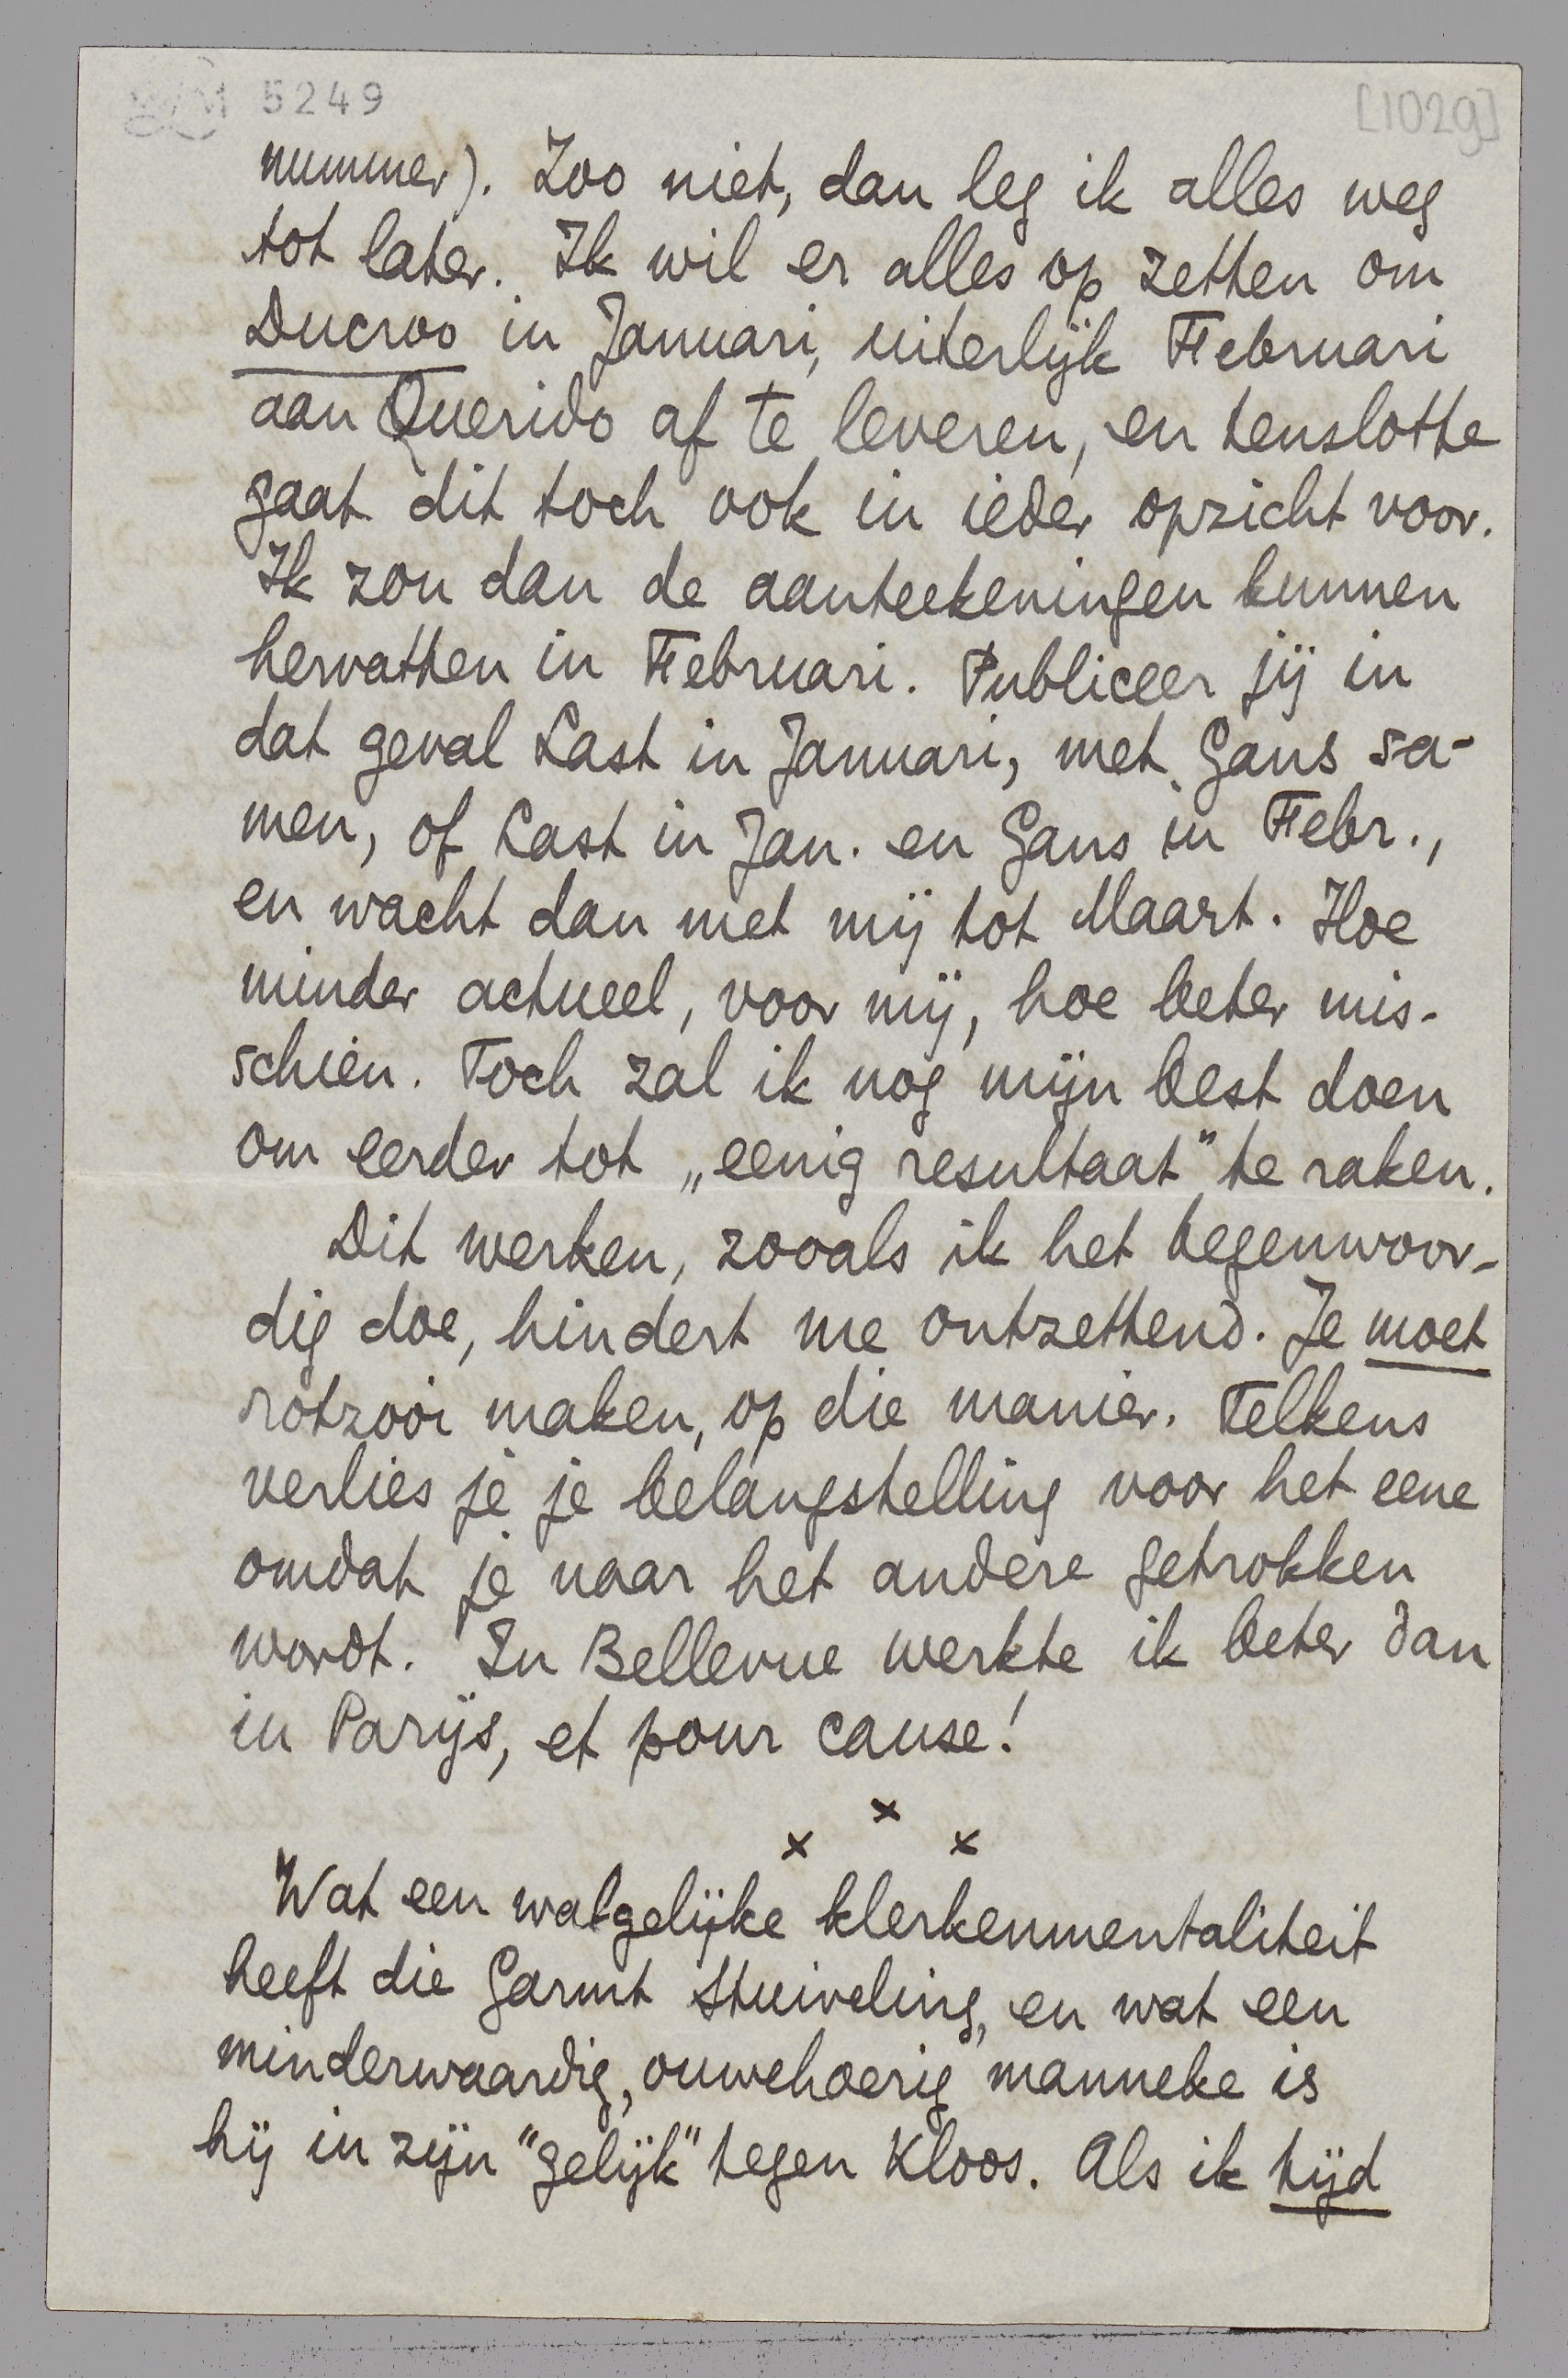 5249
[1029]
nummer). Zoo niet, dan leg ik alles weg
tot later. Ik wil er alles op zetten om
Ducroo in Januari, uiterlijk Februari
aan Querido af te leveren, en tenslotte
gaat dit toch ook in ieder opzicht voor.
Ik zou dan de aanteekeningen kunnen
hervatten in Februari. Publiceer jij in
dat geval Last in Januari, met Gans sa-
men, of Last in Jan. en Gans in Febr.,
en wacht dan met mij tot Maart. Hoe
minder actueel, voor mij, hoe beter mis-
schien. Toch zal ik nog mijn best doen
om eerder tot „eenig resultaat" te raken.
Dit werken, zooals ik het tegenwoor-
dig doe, hindert me ontzettend. Je moet
rotzooi maken, op die manier. Telkens
verlies je je belangstelling voor het eene
omdat je naar het andere getrokken
wordt. In Bellevue werkte ik beter dan
in Parijs, et pour cause!
x
x x
Wat een walgelijke klerkenmentaliteit
heeft die Garmt Stuiveling, en wat een
minderwaardig, ouwehoerig manneke is
hij in zijn "gelijk" tegen Kloos. Als ik tijd